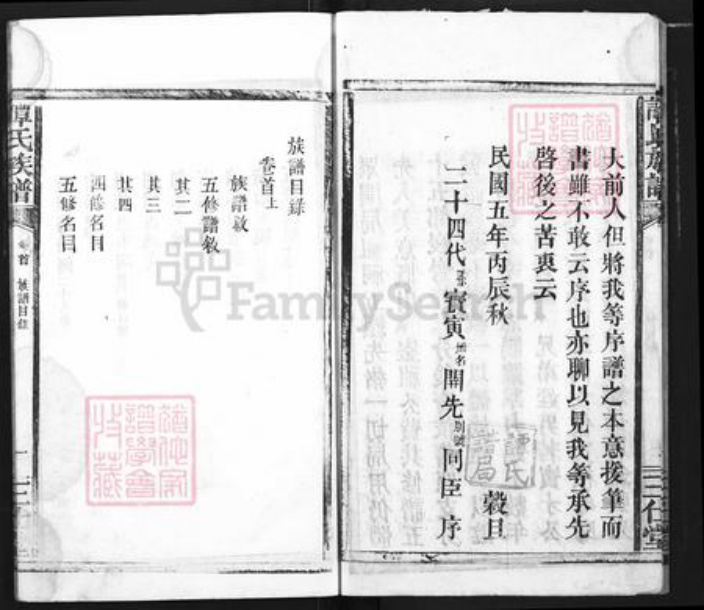 大前人但將我等序譜之本意援筆而
書雖不敢云序也亦聊以見我等承先
啓後之苦衷云
民國五年丙辰秋 穀旦
二十四代孫賓寅 派名 開先 別號 同臣 序
譚氏
譜局
譚氏族譜
三仁堂
族譜目錄
卷首上
族譜敘
五修譜敘
其二
其三
其四
四修名目
五修名目
譚氏族譜
卷首 族譜目錄
一
FamilySearch